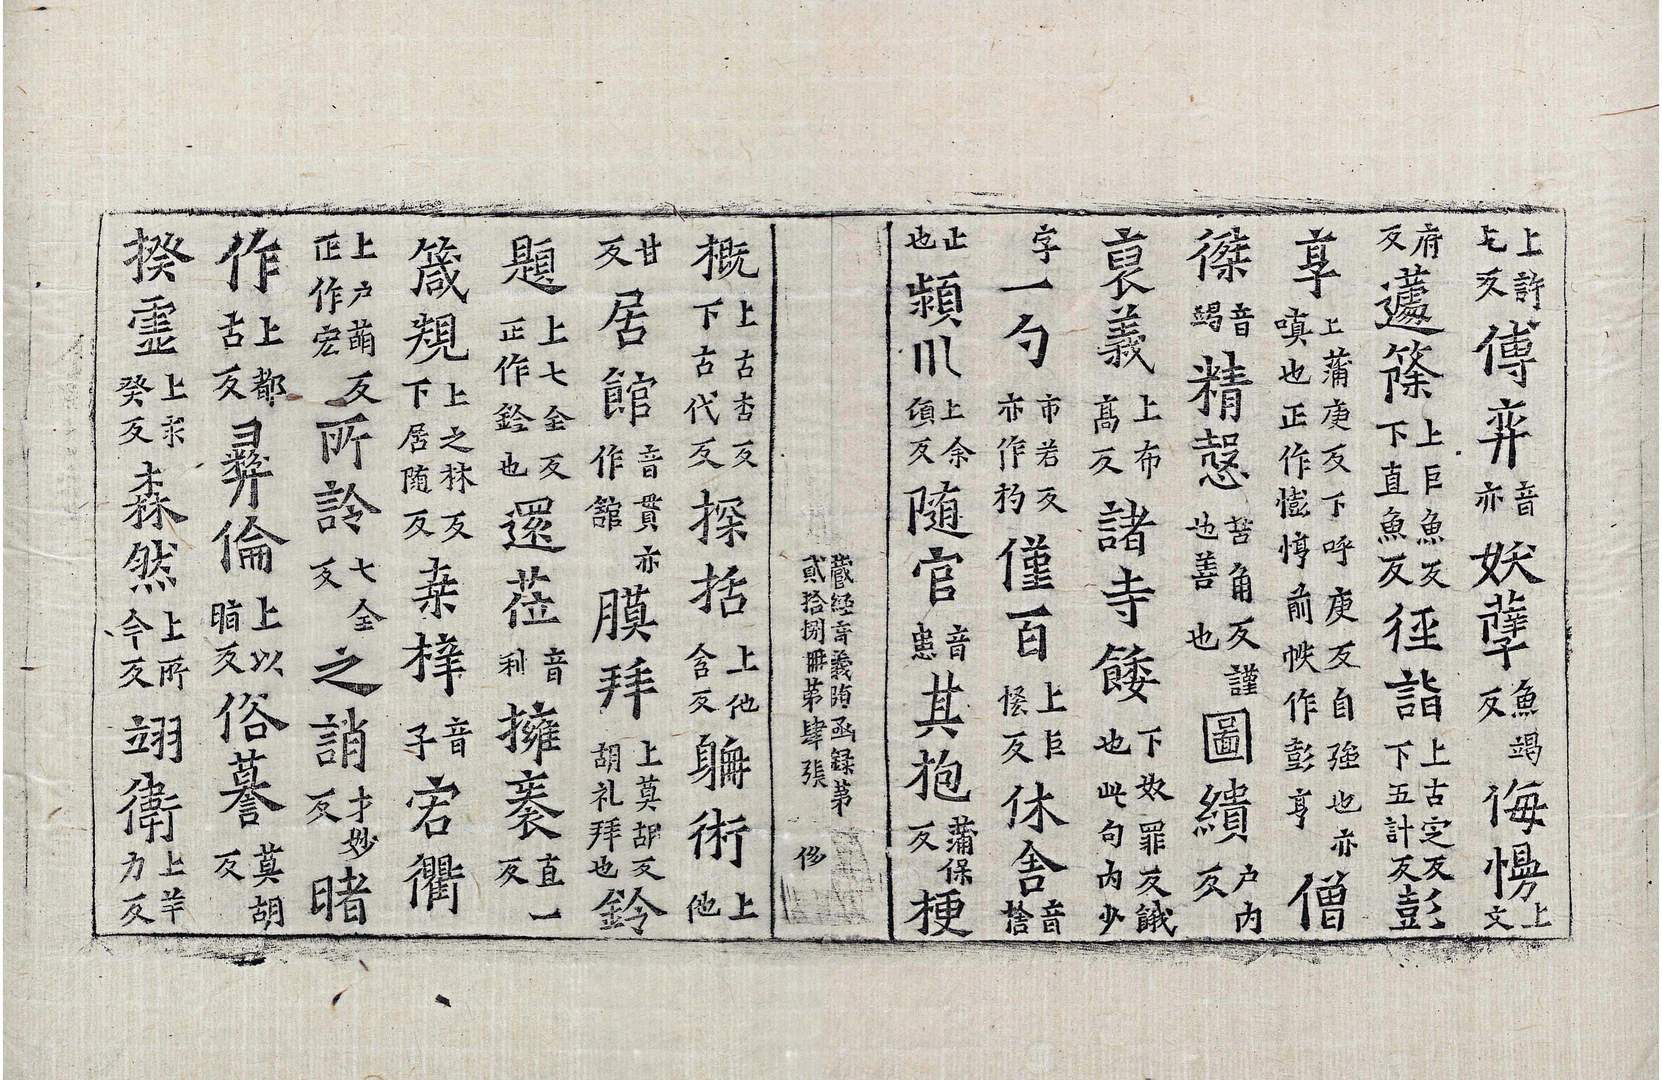 上許乞反傅弈音亦妖孽魚竭反侮慢上文
府反籧篨上巨魚反下直魚反徑詣上古定反下五計反彭
享上蒲庚反下呼庚反自強也亦嗔也正作憉悙前帙作彭亨僧
傑音竭精愨苦角反謹也善也圖繢户内反
裒義上布髙反諸寺餧下奴罪反餓也此句内少
字一勺市若反亦作杓僅百上巨恡反休舎音捨
止也潁川上余頃反随官音患其抱蒲保反梗
藏經音義随函録第貳拾捌冊第肆張 侈
概上古杏反下古代反探括上他含反躭術上他
甘反居館音貫亦作舘膜拜上莫胡反胡礼拜也鈴
題上七全反正作銓也還莅音利擁袠直一反
箴規上之林反下居随反桒梓音子宕衢
上户萌反正作宏所詅七全反之誚才妙反睹
作上都古反彛倫上以脂反俗謩莫胡反
揆霊上求癸反森然上所今反翊衛上羊力反